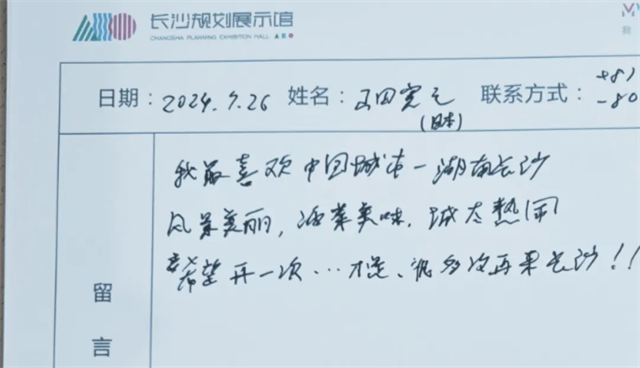 长沙规划展示馆
CHANGSHA PLANNING EXHIBITION HALL
日期: 2024.7.26 姓名: 田宪之 联系方式: +81
(日本) -80
我最喜欢中国城市一湖南长沙
风景美丽,海菜美味,城太热闹
希望再一次…才是、很多次再来长沙!!
留
言